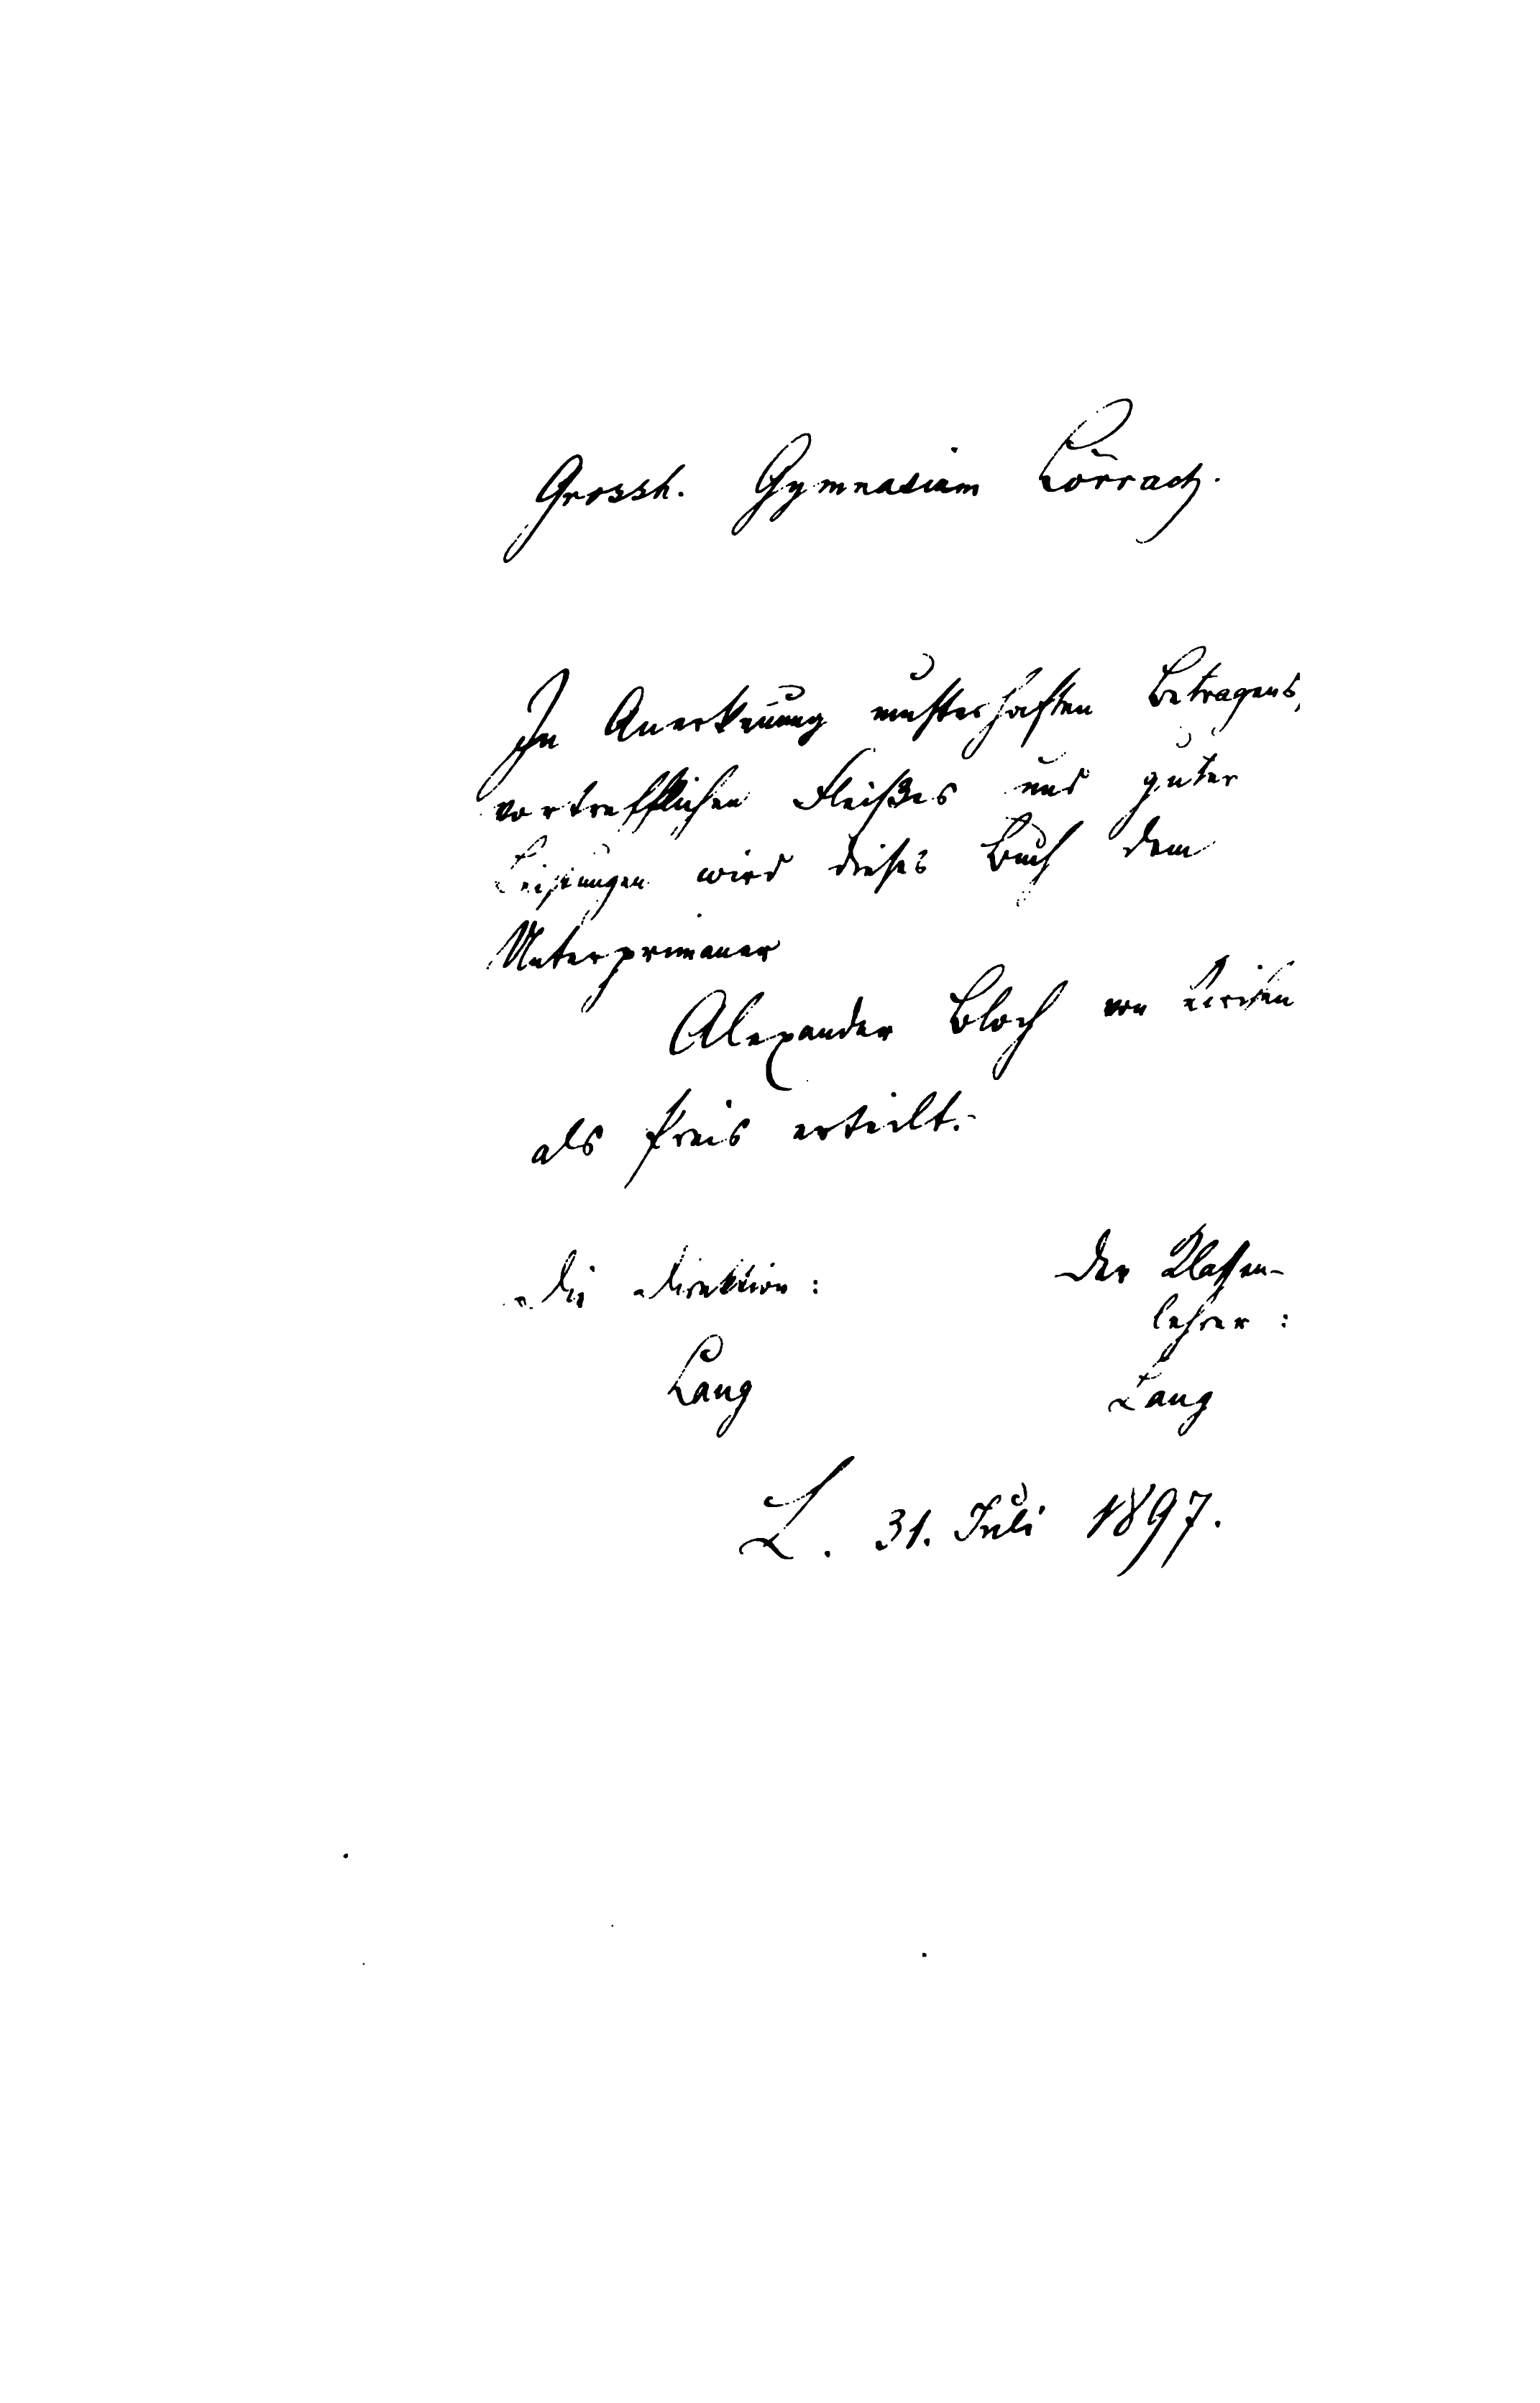 Grossh. Gymnasium Lörrach.
In Anerkennung musterhaften Betragens,
vortrefflichen Fleißes und guter
Leistungen wird dieses Buch dem
Unterprimaner
Alexander Bloch von
als Preis erteilt.
Die Direktion:
Der Klassen-
lehrer:
Lang
Lang
L. 31. Juli 1897.